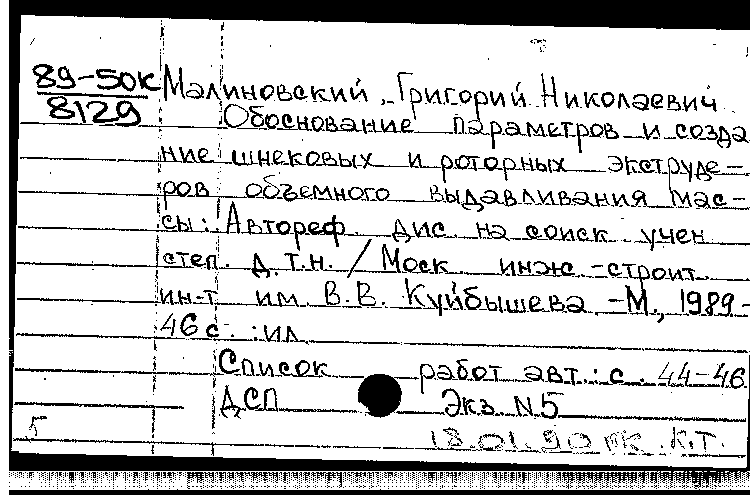 89-50К
8129
Малиновский, Григорий Николаевич
Обоснование параметров и созда
ние шнековых и роторных экструде-
ров объемного выдавливания мас-
сы: Автореф. дис. на соиск. учен.
степ. д.т.н. / Моск. инж.-строит.
ин-т им. В.В. Куйбышева -М., 1989-
46 с. : ил.
Список работ авт.: с. 44-46
ДСП Экз. N5
5 18.01.90 К.Т.